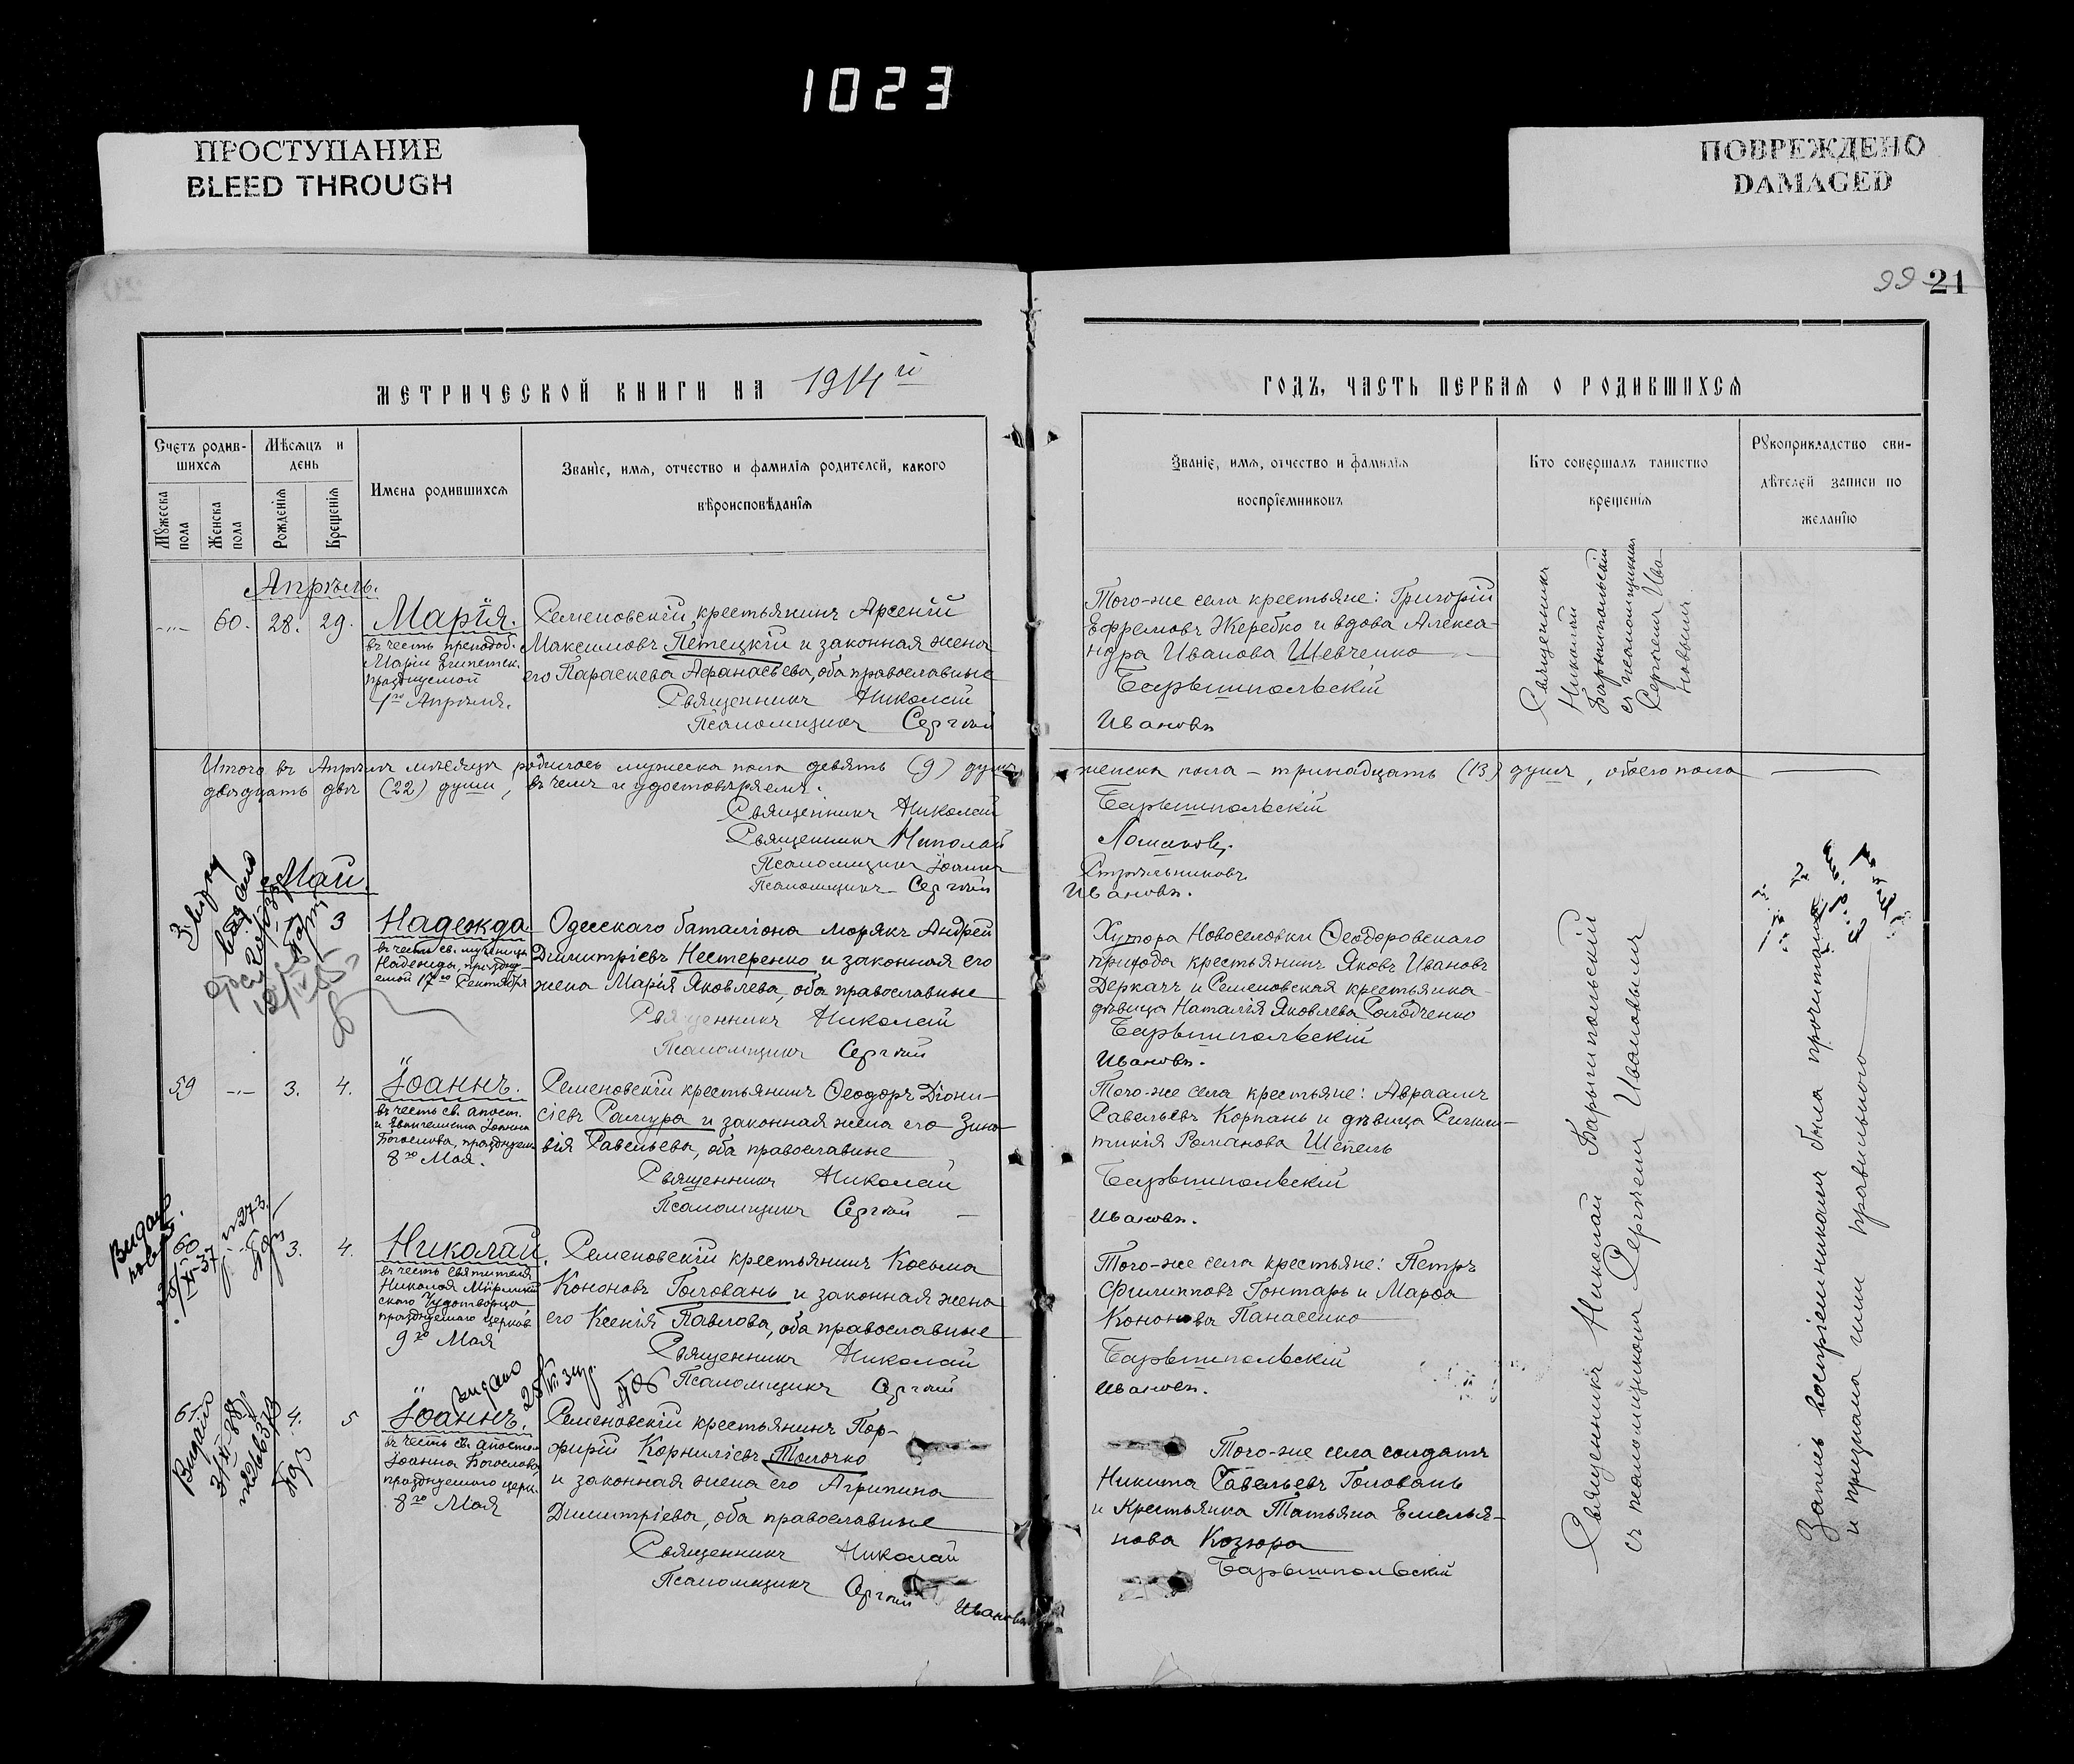 1023
ПРОСТУПАНИЕ
BLEED THROUGH
ПОВРЕЖДЕНО
DAMAGED
99 21
МЕТРИЧЕСКОЙ КНИГИ НА 1914 й
ГОДЪ, ЧАСТЬ ПЕРВАЯ О РОДИВШИХСЯ
Счетъ родив-
шихся
Мѣсяцъ и
день
Мужеска
пола
Женска
пола
Рожденія
Крещенія
Имена родившихся
Званіе, имя, отчество и фамилія родителей, какого
вѣроисповѣданія
Званіе, имя, отчество и фамилія
воспріемниковъ
Кто совершалъ таинство
крещенія
Рукоприкладство сви-
дѣтелей записи по
желанію
Апрѣль.
60. 28. 29.
Марія.
въ честь преподоб.
Маріи Египетск.
празднуемой
1го Апрѣля.
Семеновскій крестьянинъ Арсеній
Максимовъ Петецкій и законная жена
его Параскева Афанасьева, оба православные
Священникъ Николай
Псаломщикъ Сергій
Того-же села крестьяне: Григорій
Ефремовъ Жеребко и вдова Алекса-
ндра Иванова Шевченко
Барышпольскій
Ивановъ
Священникъ
Николай
Барышпольскій
съ псаломщикомъ
Сергіемъ Ива-
новымъ
Итого въ Апрѣлѣ мѣсяцѣ родилось мужеска пола девять (9) душъ женска пола – тринадцать (13) душъ, обоего пола
двадцать двѣ (22) души, въ чемъ и удостовѣряемъ.
Священникъ Николай Барышпольскій
Священникъ Николай
Псаломщикъ Іоаннъ Стрѣльниковъ
Псаломщикъ Сергій Ивановъ.
Май.
3
Надежда
въ честь св. мученицы
Надежды, праздну-
емой 17го Сентября
Одесскаго баталіона морякъ Андрей
Димитріевъ Нестеренко и законная его
жена Марія Яковлева, оба православные
Священникъ Николай
Псаломщикъ Сергій
Хутора Новоселовки Ѳеодоровскаго
прихода крестьянинъ Яковъ Ивановъ
Деркачъ и Семеновская крестьянка
дѣвица Наталія Яковлева
Барышпольскій
Ивановъ.
59 3. 4.
Іоаннъ.
въ честь св. апост.
и Евангелиста Іоанна
Богослова, празднуем.
8го Мая.
Семеновскій крестьянинъ Ѳеодоръ Діони-
сіевъ и законная жена его Зино-
вія Савельева, оба православные
Священникъ Николай
Псаломщикъ Сергій
Того-же села крестьяне: Авраамъ
Савельевъ Корпань и дѣвица Сигкли-
тикія Романова Шепель
Барышпольскій
Ивановъ.
60 3. 4.
Николай.
въ честь Святителя
Николая Мѵрликій
скаго Чудотворца,
празднуемаго церков.
9го Мая
Семеновскій крестьянинъ Косьма
Кононовъ Головань и законная жена
его Ксенія Павлова, оба православные
Священникъ Николай
Псаломщикъ Сергій
Того-же села крестьяне: Петръ
Филипповъ Гонтарь и Марѳа
Кононова Панасенко
Барышпольскій
Ивановъ.
видано
61. 4. 5
Видано
Іоаннъ.
въ честь св. апостола
Іоанна Богослова,
празднуемаго церк.
8го Мая
Семеновскій крестьянинъ Пор-
фирій Корниліевъ Толочко
и законная жена его Агрипина
Димитріева, оба православные
Священникъ Николай
Псаломщикъ Сергій Ивановъ
Того-же села солдатъ
Никита Савельевъ Головань
и Крестьянка Татьяна Емелья-
нова Козюра
Барышпольскій
Священникъ Николай Барышпольскій
съ псаломщикомъ Сергіемъ Ивановымъ
Запись воспріемниками была прочитана
и признана ими правильною